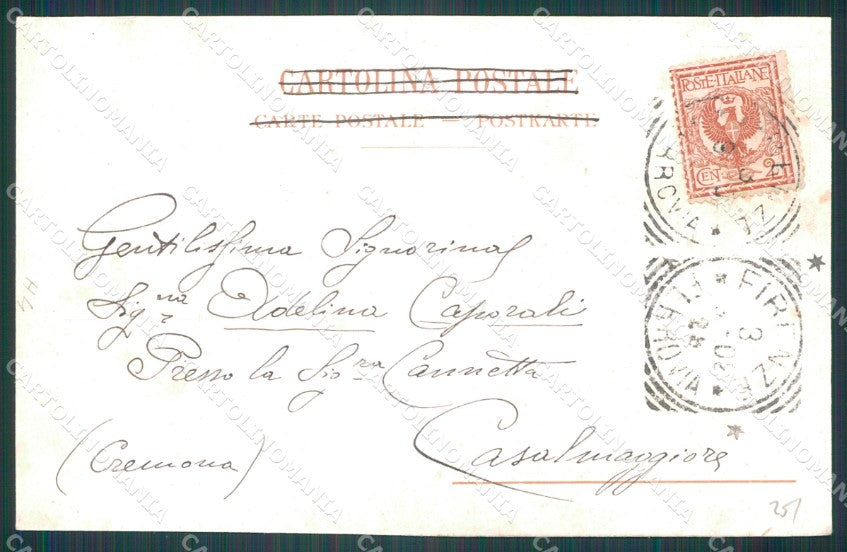 CARTOLINA POSTALE
CARTE POSTALE — POSTKARTE
POSTE ITALIANE
CEN. 2
FERROVIA
FIRENZE
FERROVIA
3
Gentilissima Signorina
Sig.na Adelina Caporali
Presso la Sig.ra Cannetta
Casalmaggiore
(Cremona)
25/
CARTOLINOMANIA